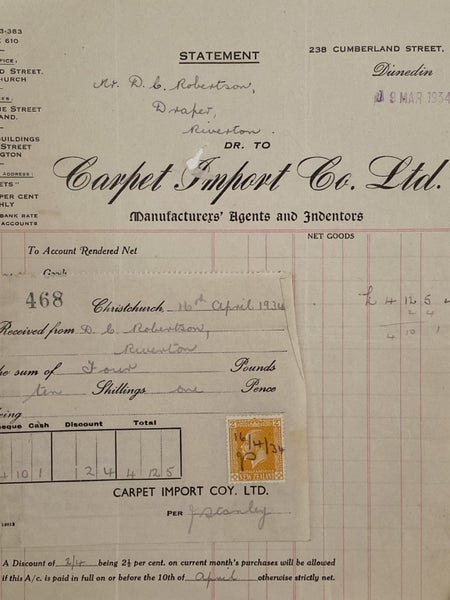 3-363
610
STATEMENT
238 CUMBERLAND STREET,
Dunedin
9 MAR 1934
OFFICE,
D STREET.
CHURCH
STREET
LAND.
BUILDINGS
NGTON
ADDRESS:
ETS"
PER CENT
HLY
BANK RATE
ACCOUNTS
Mr. D. C. Robertson,
Draper,
Riverton.
DR. TO
Carpet Import Co. Ltd.
Manufacturers' Agents and Indentors
NET GOODS
To Account Rendered Net
Goods
£ 4 12 5
2 4
4 10 1
468
Christchurch, 16th April 1934
Received from D. C. Robertson,
Riverton
he sum of Four Pounds
ten Shillings one Pence
eing
eque Cash Discount Total
4 10 1 2 4 4 12 5
16/4/34
NEW ZEALAND
CARPET IMPORT COY. LTD.
PER J Stanley
A Discount of 2/4 being 2½ per cent. on current month's purchases will be allowed
if this A/c. is paid in full on or before the 10th of April otherwise strictly net.